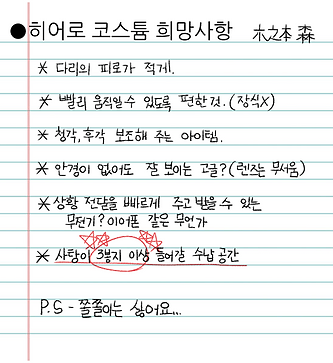 ●히어로 코스튬 희망사항 木之本 森
* 다리의 피로가 적게.
* 빨리 움직일 수 있도록 편한 것. (장식X)
* 청각, 후각 보조해 주는 아이템.
* 안경이 없어도 잘 보이는 고글? (렌즈는 무서움)
* 상황 전달을 빠르게 주고 받을 수 있는
무전기? 이어폰 같은 무언가
* 사탕이 3봉지 이상 들어갈 수납 공간
P.S - 쫄쫄이는 싫어요...